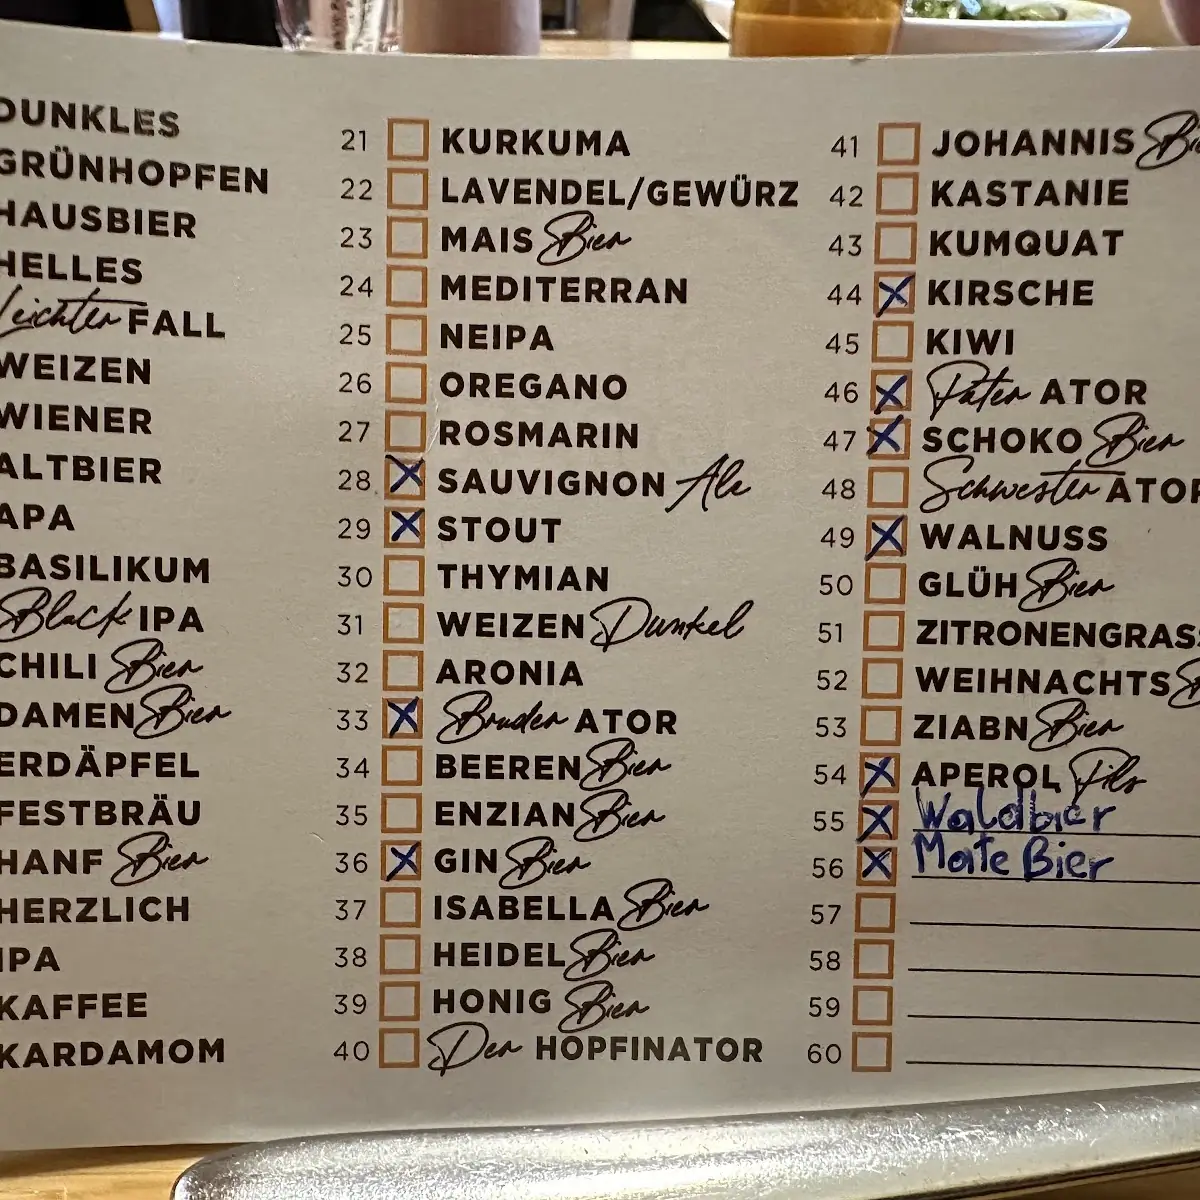 DUNKLES
GRÜNHOPFEN
HAUSBIER
HELLES
Leichter FALL
WEIZEN
WIENER
ALTBIER
APA
BASILIKUM
Black IPA
CHILI Bier
DAMEN Bier
ERDÄPFEL
FESTBRÄU
HANF Bier
HERZLICH
IPA
KAFFEE
KARDAMOM
21 KURKUMA
22 LAVENDEL/GEWÜRZ
23 MAIS Bier
24 MEDITERRAN
25 NEIPA
26 OREGANO
27 ROSMARIN
28 SAUVIGNON Ale
29 STOUT
30 THYMIAN
31 WEIZEN Dunkel
32 ARONIA
33 Bruder ATOR
34 BEEREN Bier
35 ENZIAN Bier
36 GIN Bier
37 ISABELLA Bier
38 HEIDEL Bier
39 HONIG Bier
40 Der HOPFINATOR
41 JOHANNIS Bie
42 KASTANIE
43 KUMQUAT
44 KIRSCHE
45 KIWI
46 Pater ATOR
47 SCHOKO Bier
48 Schwester ATOR
49 WALNUSS
50 GLÜH Bier
51 ZITRONENGRAS
52 WEIHNACHTS
53 ZIABN Bier
54 APEROL Pils
55 Waldbier
56 Mate Bier
57
58
59
60